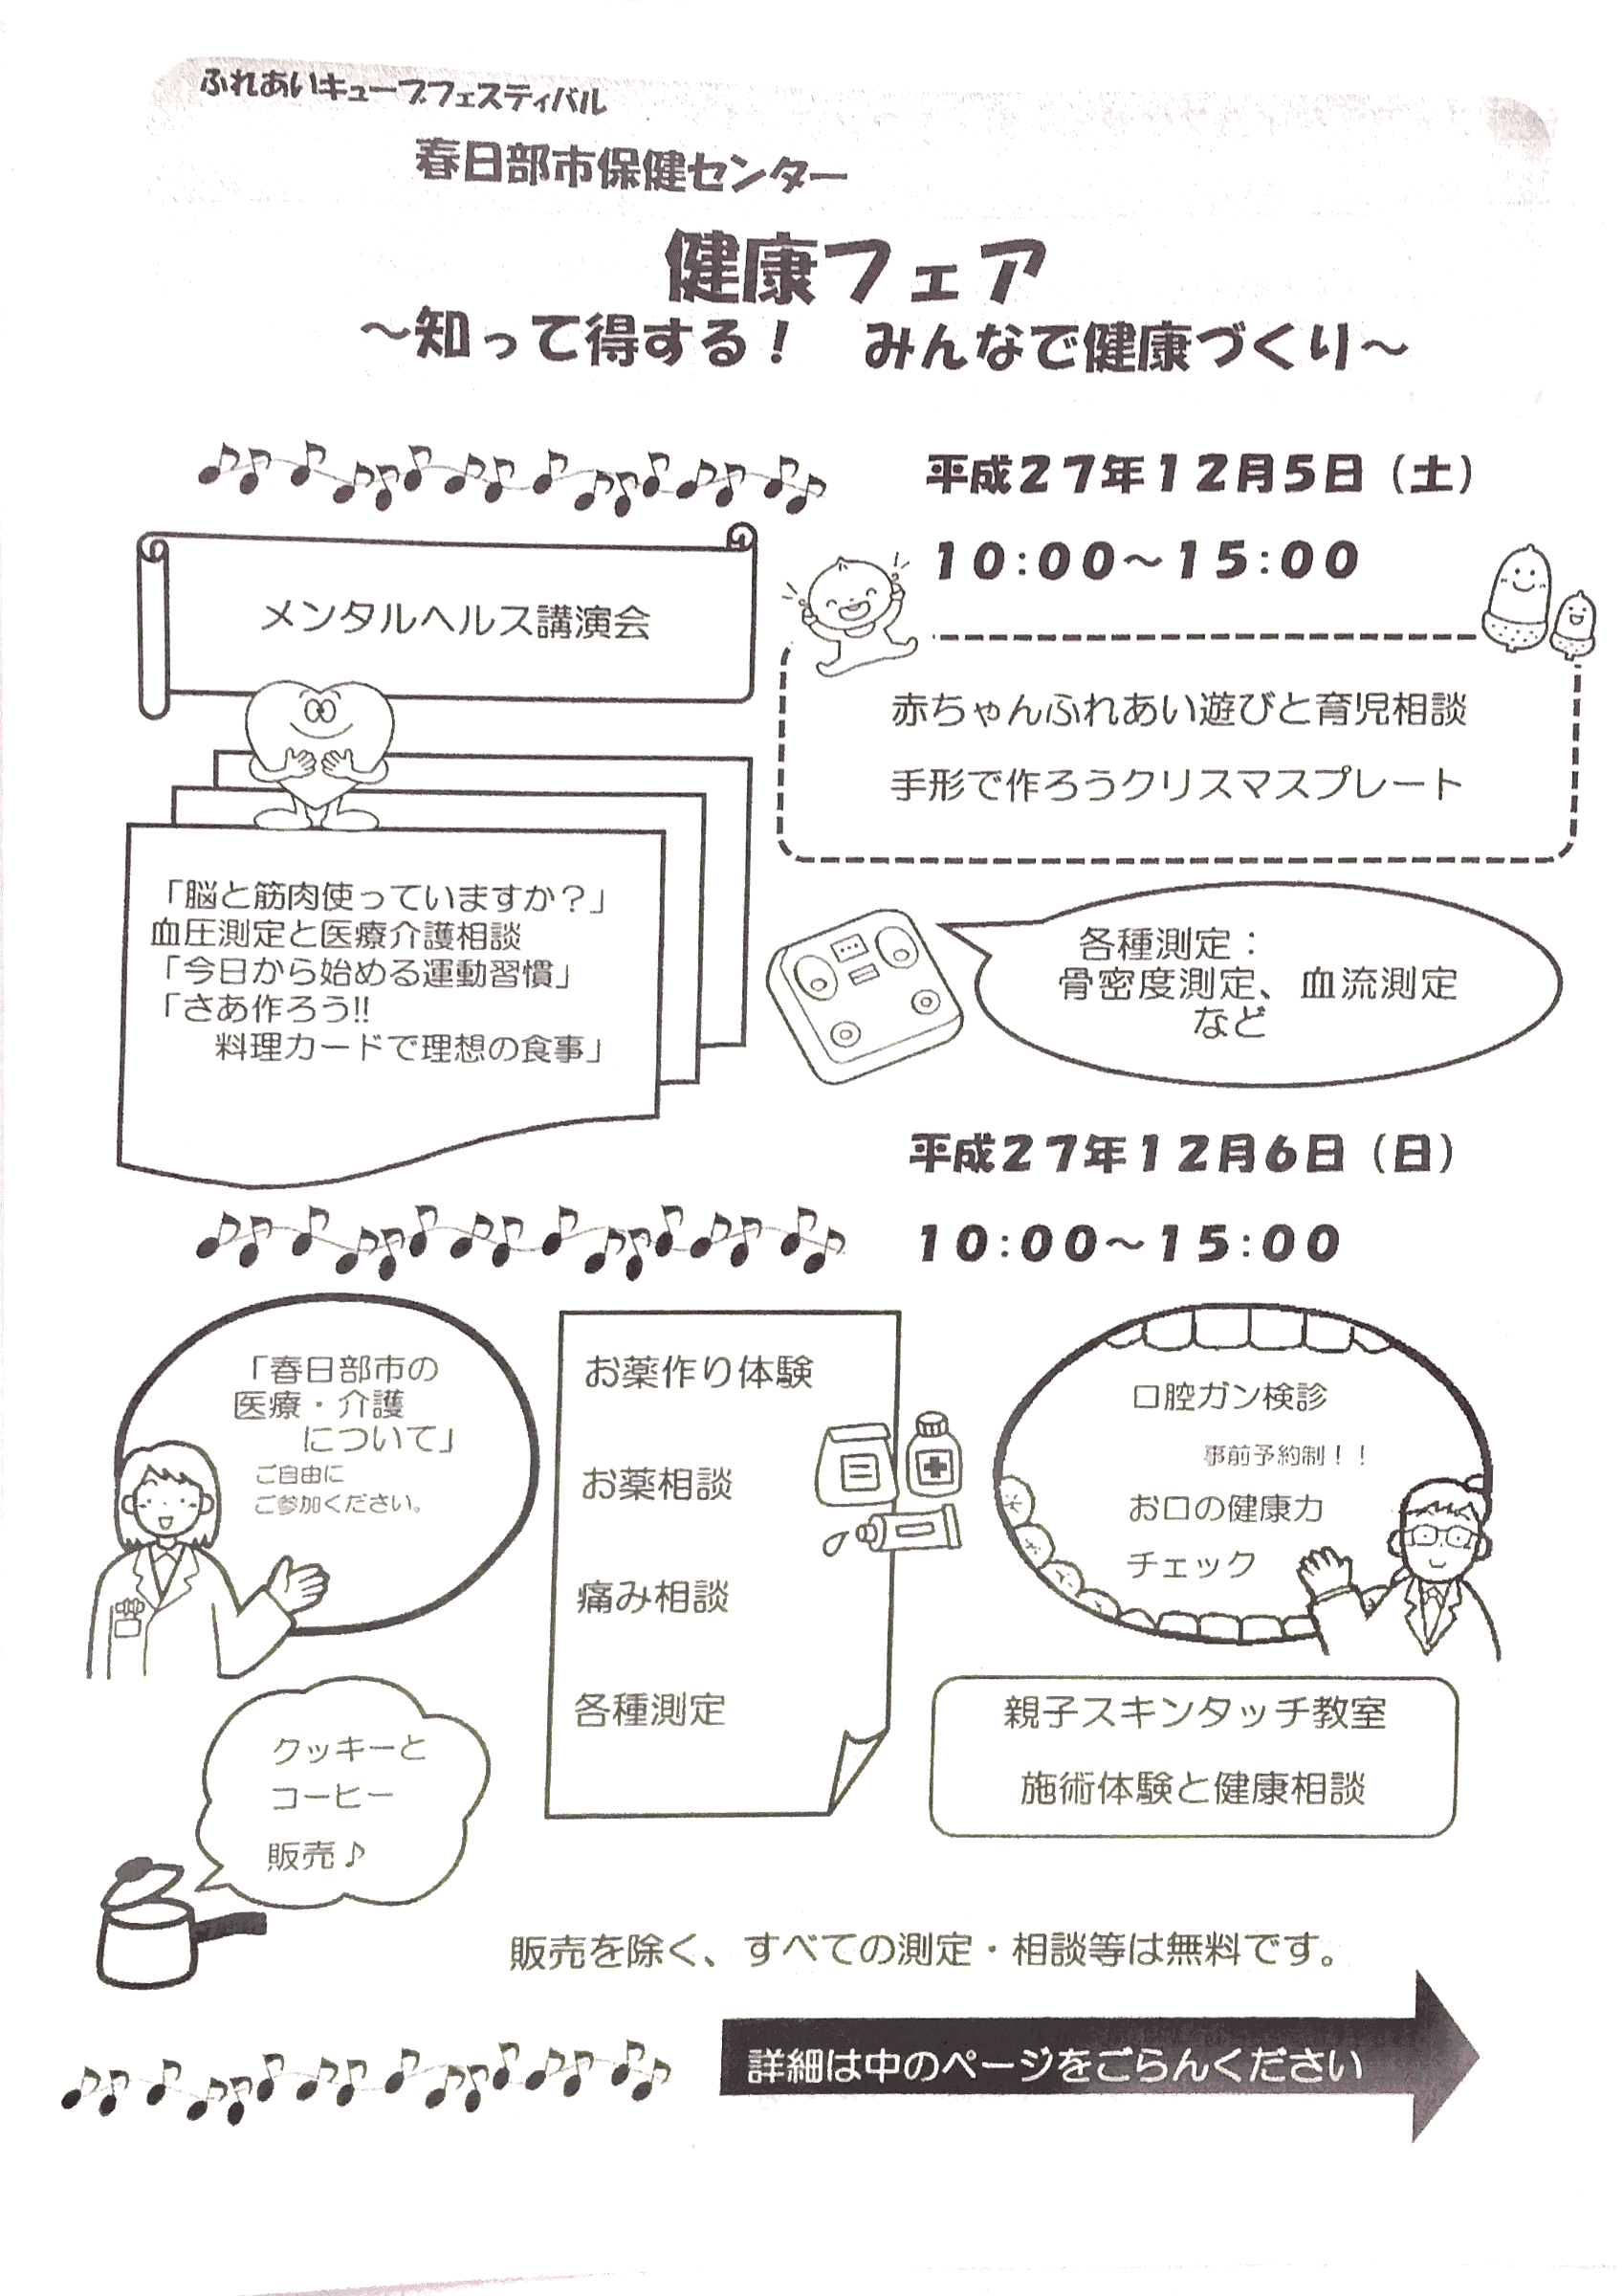 ふれあいキューブフェスティバル
春日部市保健センター
健康フェア
～知って得する！　みんなで健康づくり～
平成２７年１２月５日（土）
１０：００～１５：００
メンタルヘルス講演会
赤ちゃんふれあい遊びと育児相談
手形で作ろうクリスマスプレート
「脳と筋肉使っていますか？」
血圧測定と医療介護相談
「今日から始める運動習慣」
「さあ作ろう!!
料理カードで理想の食事」
各種測定：
骨密度測定、血流測定
など
平成２７年１２月６日（日）
１０：００～１５：００
「春日部市の
医療・介護
について」
ご自由に
ご参加ください。
お薬作り体験
お薬相談
痛み相談
各種測定
口腔ガン検診
事前予約制！！
お口の健康力
チェック
クッキーと
コーヒー
販売♪
親子スキンタッチ教室
施術体験と健康相談
販売を除く、すべての測定・相談等は無料です。
詳細は中のページをごらんください